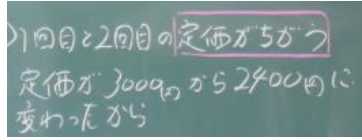 )1回目と2回目の定価がちがう
定価が3000円から2400円に
変わったから